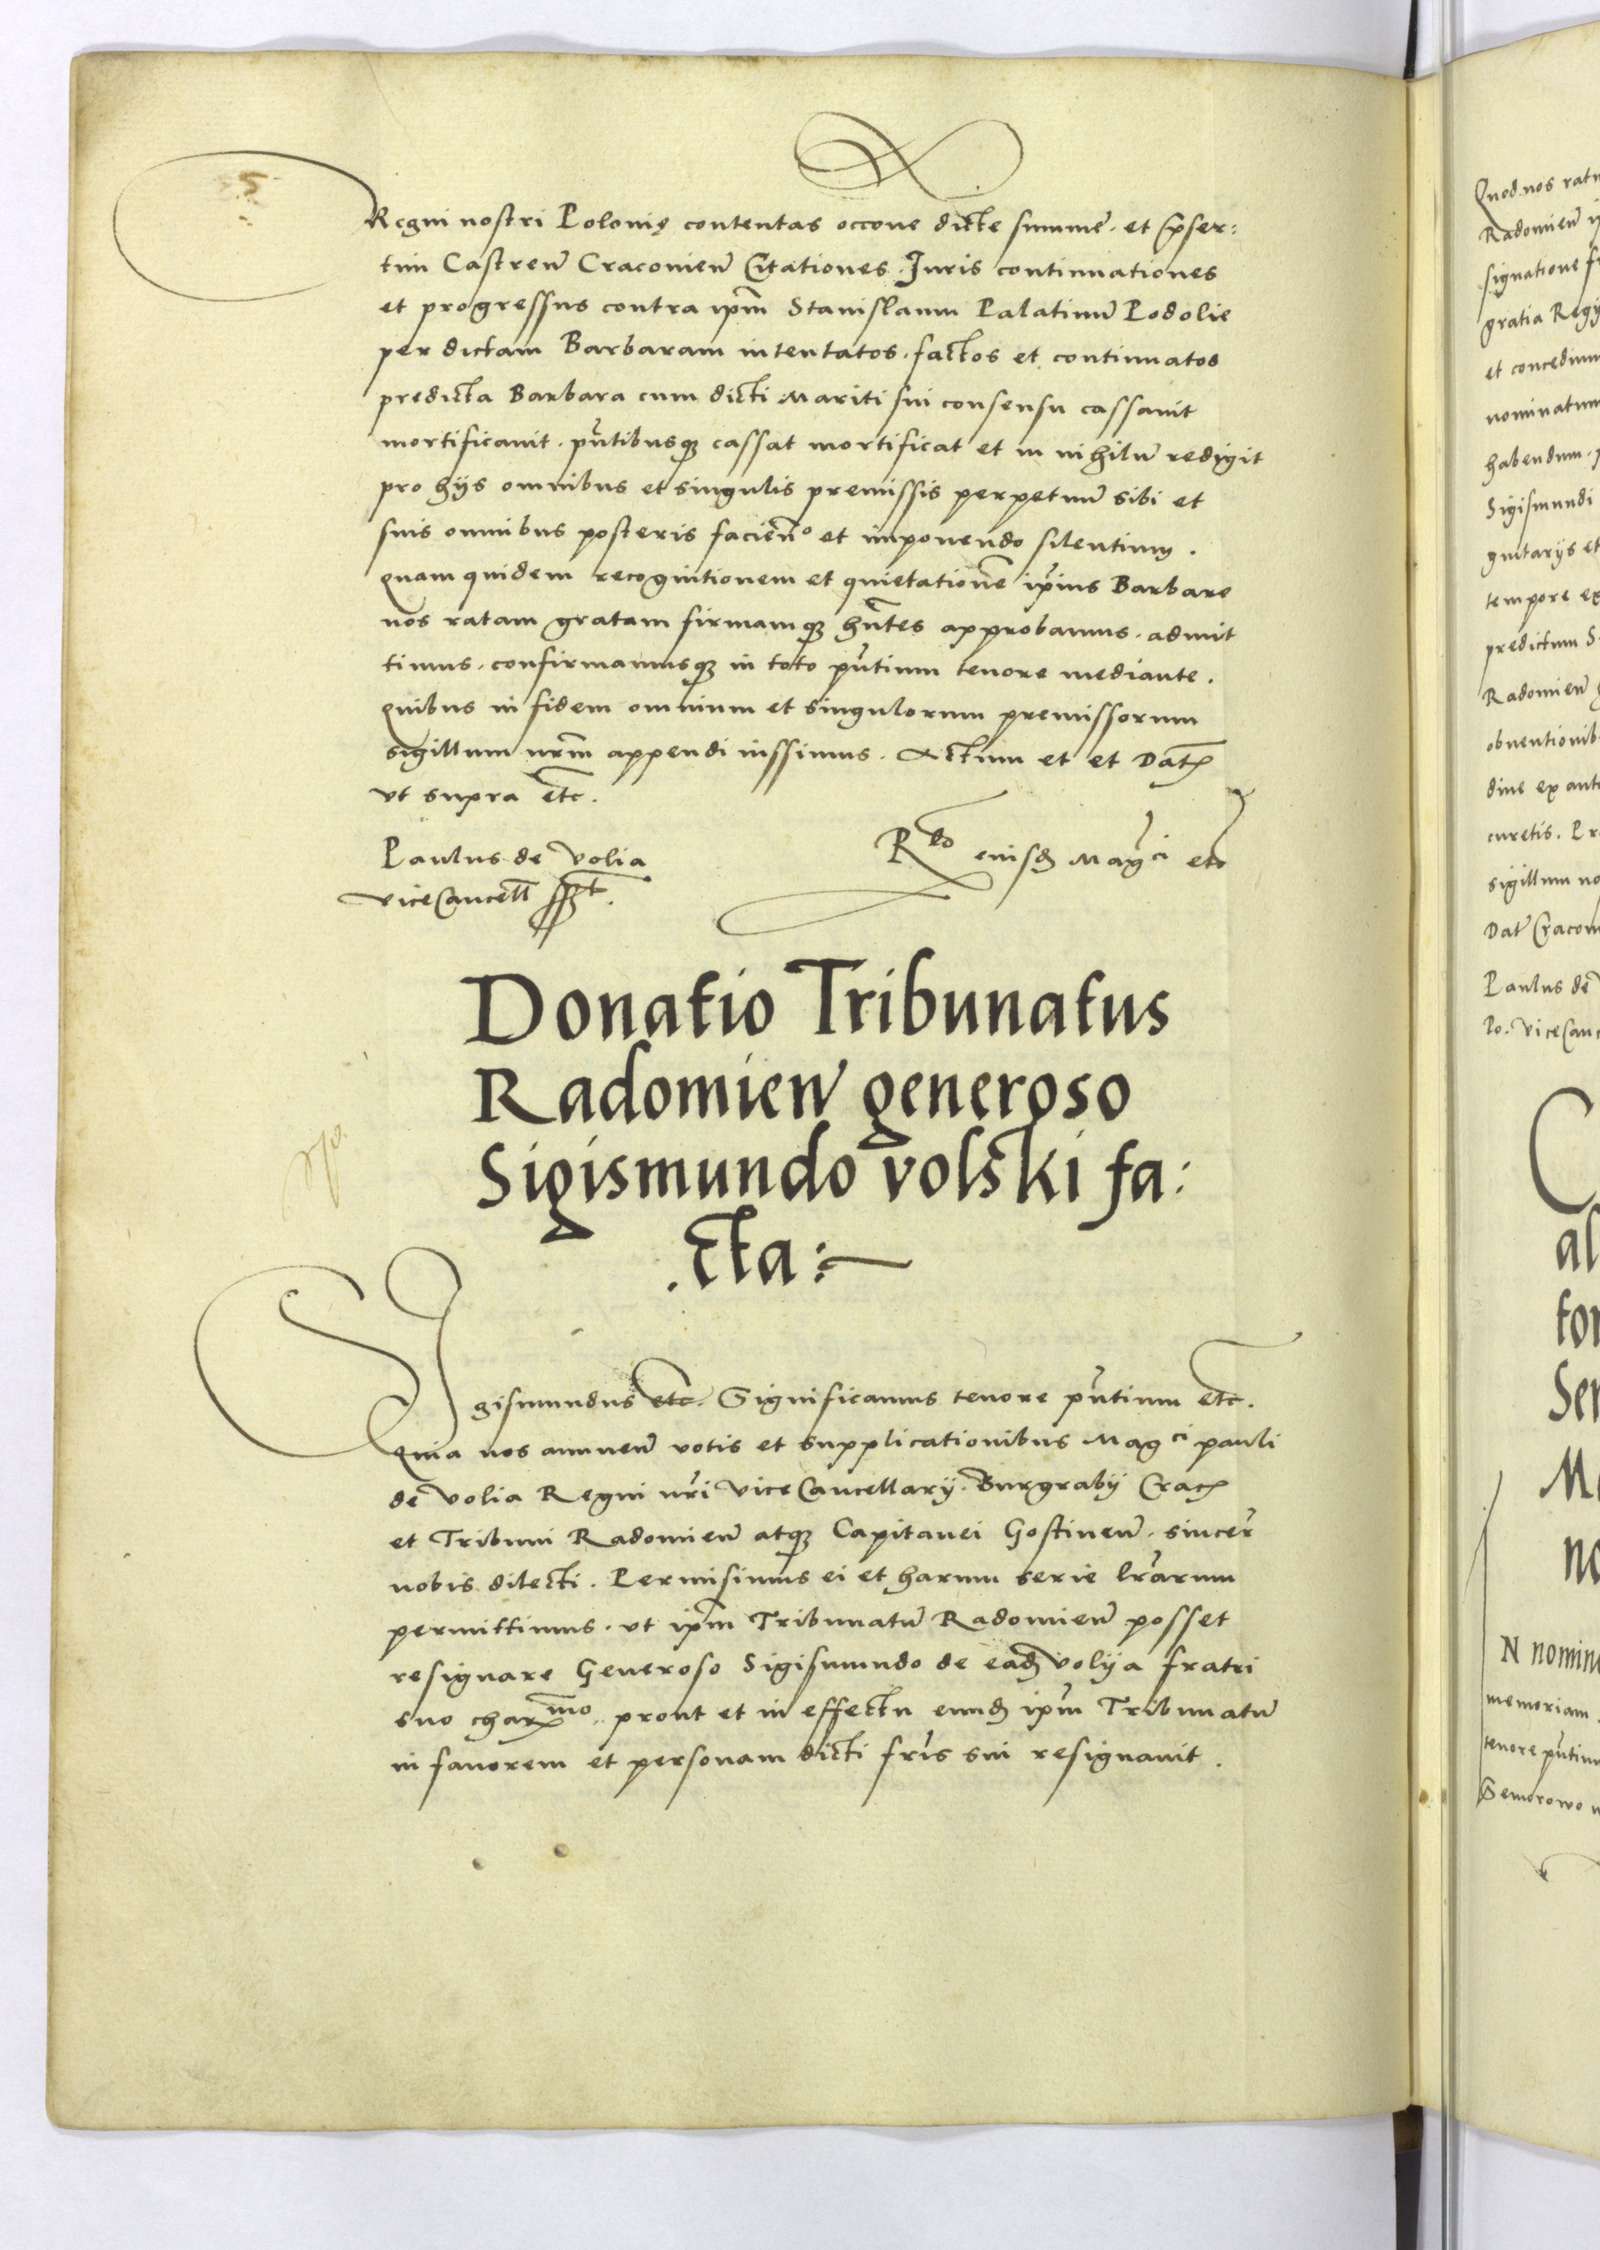 5
Regni nostri Polonię contentas occõne dicte summe. et p̃ser:
tim Castreñ Cracovieñ Citationes. Juris continuationes
et progressus contra ip̃m Stanislaum Palatinũ Podolie
per dictam Barbaram intentatos. factos et continuatos
predicta Barbara cum dicti Mariti sui consensu cassavit
mortificavit. pñtibusq; cassat mortificat et in nihilũ redigit
pro hÿs omnibus et singulis premissis perpetuũ sibi et
suis omnibus posteris facieñº et imponendo silentium.
quam quidem recognitionem et quietationẽ ip̃ius Barbare
nos ratam gratam firmamq; hñtes approbamus. admit
timus. confirmamusq; in toto pñtium tenore mediante.
quibus in fidem omnium et singulorum premissorum
sigillum nr̃m appendi iussimus. Actum et et Dat̃
ut supra etc.
Paulus de Volia
ViceCancell̃ s̃s̃t.
Rdo eiusd Magci etc
Donatio Tribunatus
Radomień generoso
Sigismundo volski fa:
.cta:
Sigismundus etc. Significamus tenore pñtium etc.
Quia nos annueñ votis et supplicationibus Magci pauli
de Volia Regni nr̃i ViceCancellarÿ. Burgrabÿ Crac̃
et Tribuni Radomieñ atq; Capitanei Gostineñ. sincer̃
nobis dilecti. Permisimus ei et harum serie lr̃arum
permittimus. ut ip̃m Tribunatũ Radomieñ posset
resignare Generoso Sigismundo de ead Volÿa fratri
suo charmo. prout et in effectu eund ip̃m Tribunatũ
in favorem et personam dicti fr̃is sui resignavit.
Quod nos rat
Radomieñ
signatione
gratia Regi
et concedim
nominatum
habendum.
Sigismundi
gnitarÿs et
tempore ex
predictum S
Radomieñ
obventionib
dine ex ant
curetis. Pr
sigillum no
Dat̃ Cracov
Paulus de
Po. ViceCanc
C
al
for
Ser
Ma
no
N nomin
memoriam.
tenore pñtium